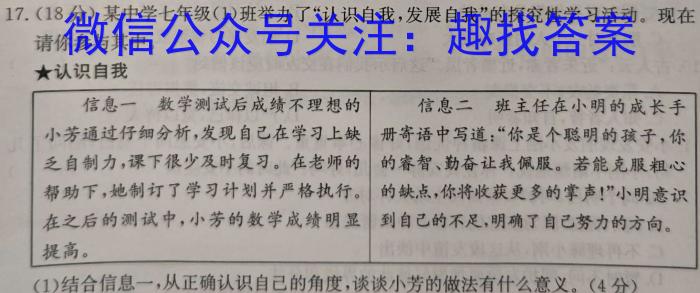 17.(18分)某中学七年级(1)班举办了“认识自我,发展自我”的探究性学习活动。现在
请你参与其中
微信公众号关注:趣找答案
★认识自我
信息一 数学测试后成绩不理想的
小芳通过仔细分析,发现自己在学习上缺
乏自制力,课下很少及时复习。在老师的
帮助下,她制订了学习计划并严格执行。
在之后的测试中,小芳的数学成绩明显
提高。
信息二 班主任在小明的成长手
册寄语中写道:“你是个聪明的孩子,你
的睿智、勤奋让我佩服。若能克服粗心
的缺点,你将收获更多的掌声!”小明意识
到自己的不足,明确了自己努力的方向。
(1)结合信息一,从正确认识自己的角度,谈谈小芳的做法有什么意义。(4分)